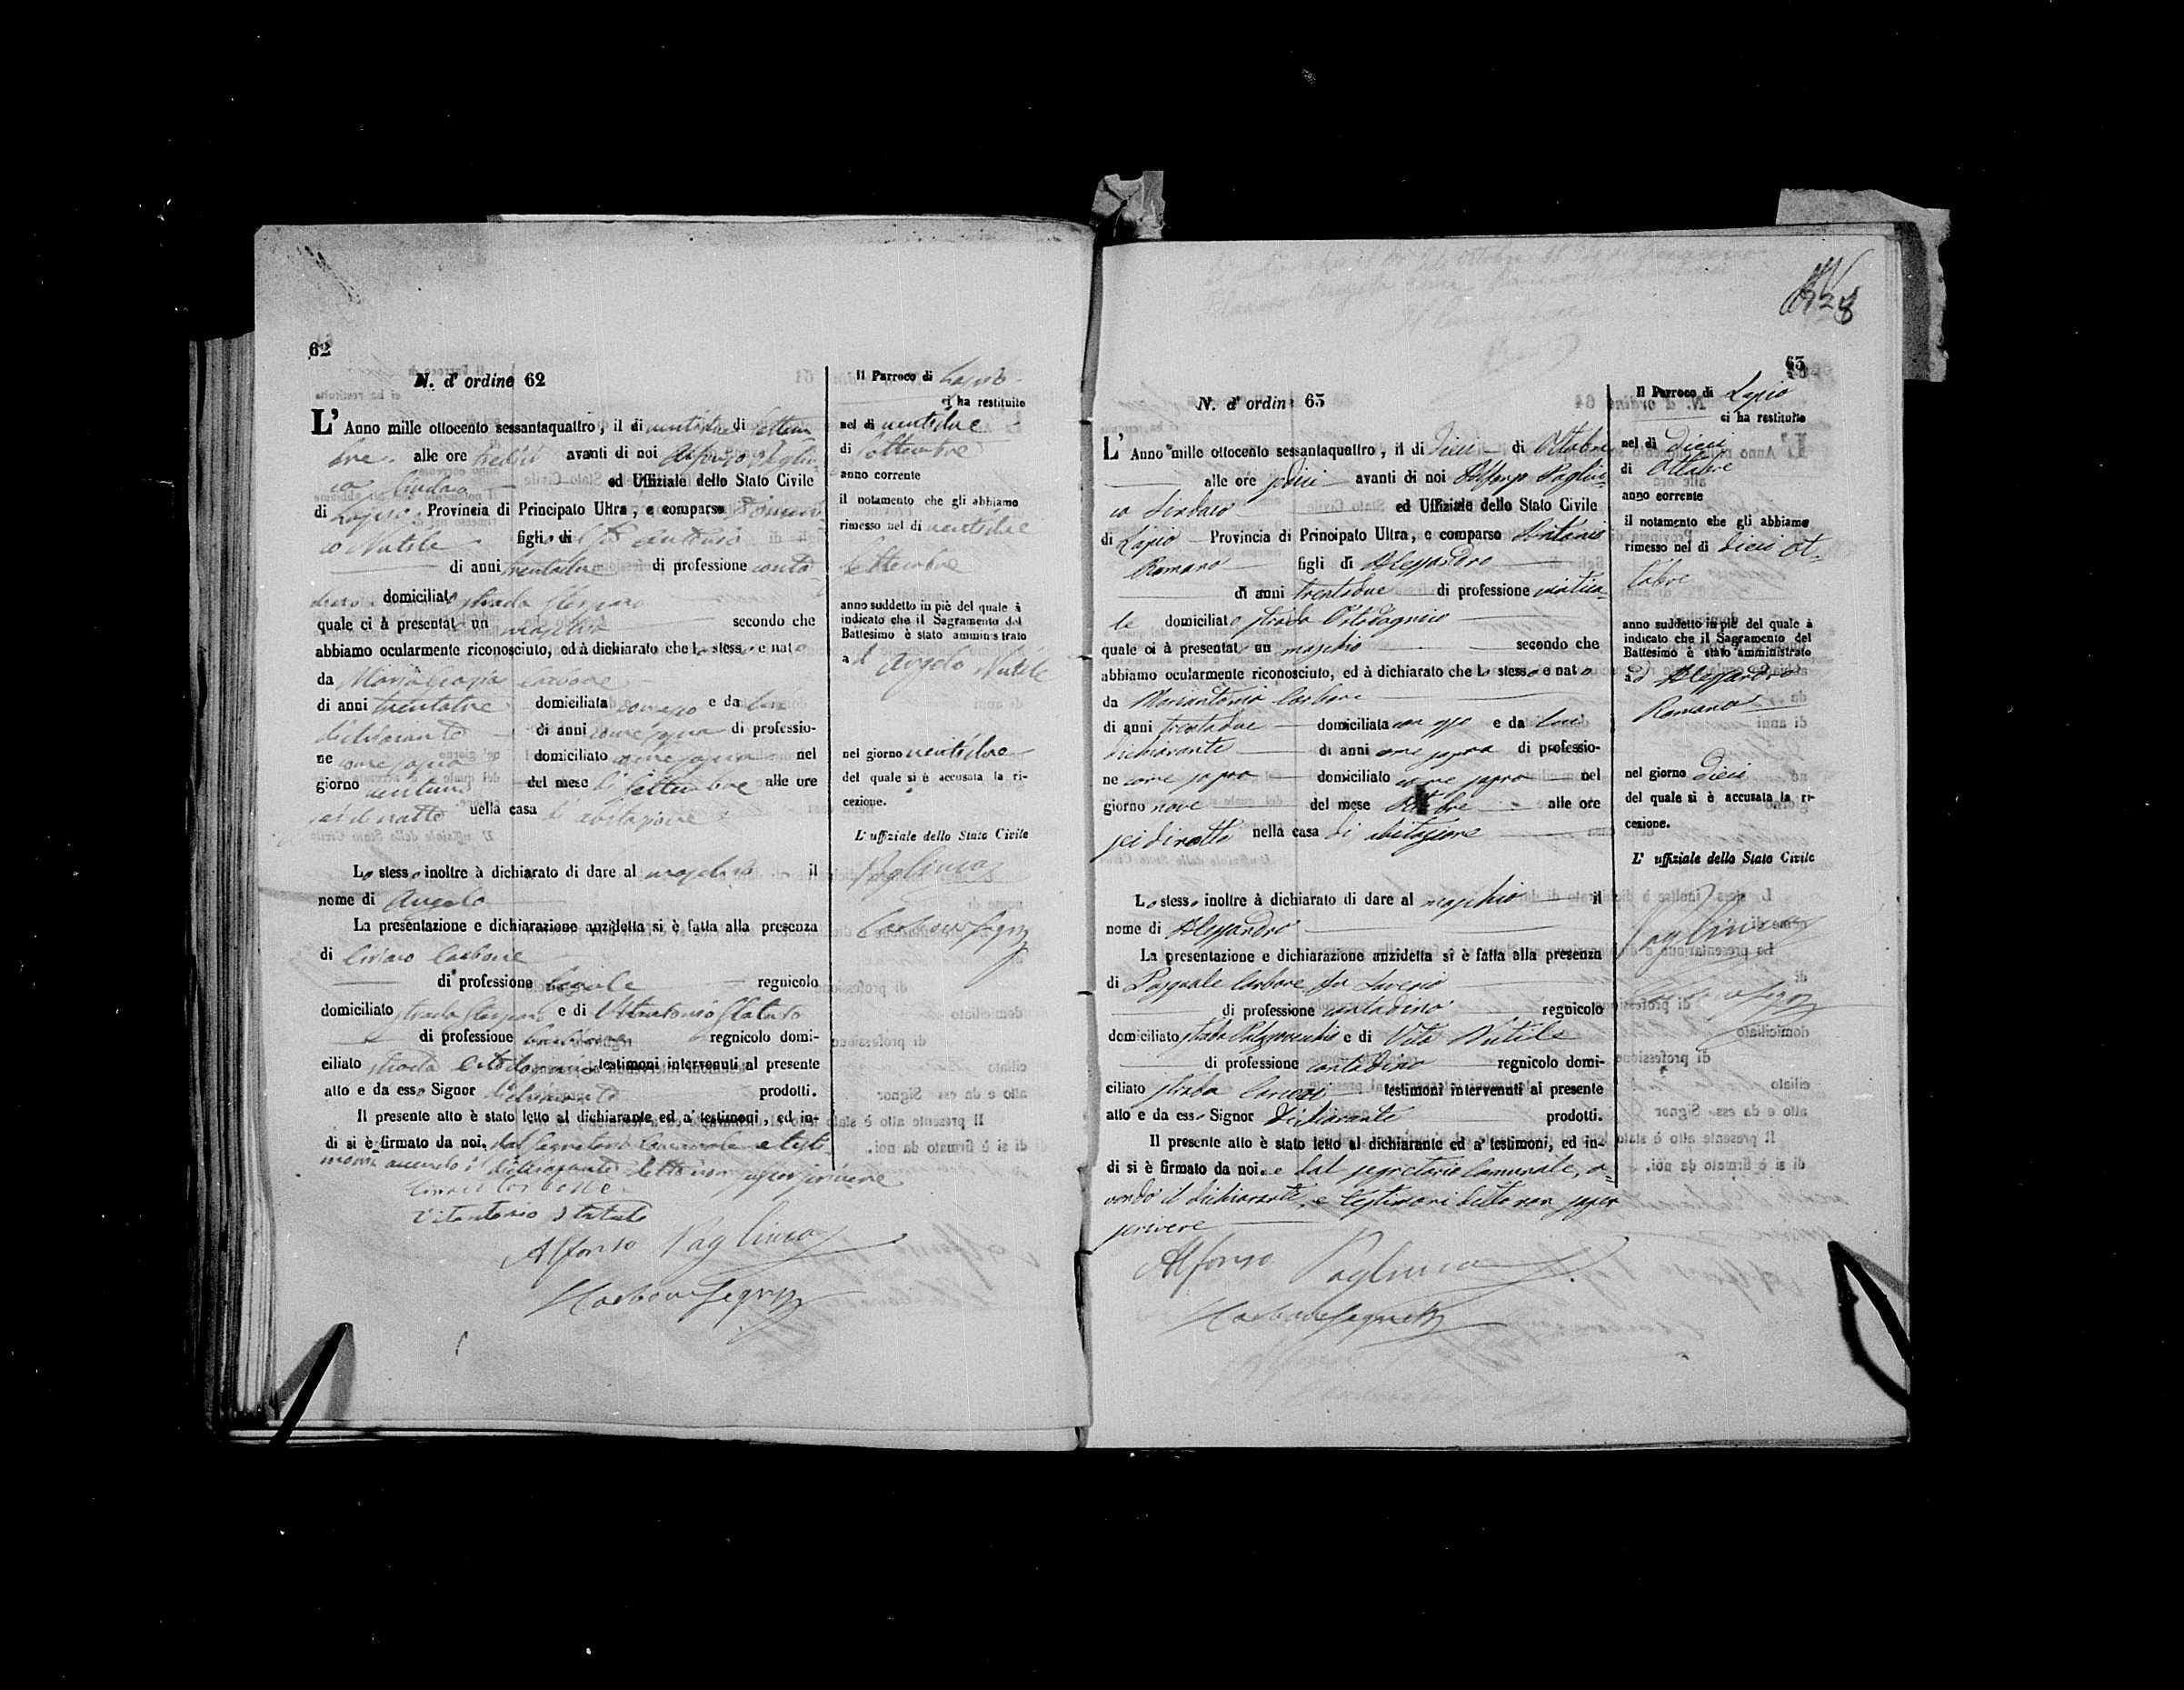 62
N. d' ordine 62
L' Anno mille ottocento sessantaquattro, il di ventidue di Settem
bre alle ore tredici avanti di noi Alfonso Pagliu
ca Sindaco ed Uffiziale dello Stato Civile
di Lapio Provincia di Principato Ultra, e comparso Domeni
co Nutile figlio di Antonio
di anni trentadue di professione conta
dino domiciliato strada
quale ci à presentato un maschio secondo che
abbiamo ocularmente riconosciuto, ed à dichiarato che Lo stesso e nato
da Maria Grazia Carbone
di anni trentatre domiciliata con esso e da lui
dichiarante di anni come sopra di professio-
ne come sopra domiciliato come sopra nel
giorno ventuno del mese di Settembre alle ore
sei di notte nella casa di abitazione
Lo stesso inoltre à dichiarato di dare al maschio il
nome di Angelo
La presentazione e dichiarazione anzidetta si è fatta alla presenza
di Ciriaco Carbone
di professione regnicolo
domiciliato strada e di Vitantonio Statuto
di professione regnicolo domi-
ciliato strada testimoni intervenuti al presente
atto e da esso Signor dichiarante prodotti.
Il presente atto è stato letto al dichiarante ed a' testimoni, ed in-
di si è firmato da noi, dal Segretario Comunale e testi
moni avendo il dichiarante detto non saper scrivere
Ciriaco Carbone
Vitantonio Statuto
Alfonso Pagliuca
Carbone Segrio
Il Parroco di Lapio
ci ha restituito
nel di ventidue
di Settembre
anno corrente
il notamento che gli abbiamo
rimesso nel di ventidue
Settembre
anno suddetto in piè del quale à
indicato che il Sagramento del
Battesimo è stato amministrato
ad Angelo Nutile
nel giorno ventidue
del quale si è accusata la ri-
cezione.
L' uffiziale dello Stato Civile
Pagliuca
Carbone Segrio
63
N. d' ordine 63
L' Anno mille ottocento sessantaquattro, il di Dieci di Ottobre
alle ore sedici avanti di noi Alfonso Pagliu-
ca Sindaco ed Uffiziale dello Stato Civile
di Lapio Provincia di Principato Ultra, e comparso Antonio
Romano figli di Alessandro
di anni trentadue di professione
le domiciliato strada
quale ci à presentat un maschio secondo che
abbiamo ocularmente riconosciuto, ed à dichiarato che Lo stesso e nato
da Mariantonia Carbone
di anni trentadue domiciliata con esso e da lui
dichiarante di anni come sopra di professio-
ne come sopra domiciliato come sopra nel
giorno nove del mese Ottobre alle ore
sei di notte nella casa di abitazione
Lo stesso inoltre à dichiarato di dare al maschio il
nome di Alessandro
La presentazione e dichiarazione anzidetta si è fatta alla presenza
di Pasquale Carbone fu Saverio
di professione contadino regnicolo
domiciliato strada e di Vito Nutile
di professione contadino regnicolo domi-
ciliato strada testimoni intervenuti al presente
atto e da esso Signor Dichiarante prodotti.
Il presente atto è stato letto al dichiarante ed a' testimoni, ed in-
di si è firmato da noi, e dal segretario Comunale, a-
vendo il dichiarante, e testimoni detto non saper
scrivere
Alfonso Pagliuca
Carbone Segrio
Il Parroco di Lapio
ci ha restituito
nel di Dieci
di Ottobre
anno corrente
il notamento che gli abbiamo
rimesso nel di dieci Ot-
tobre
anno suddetto in piè del quale à
indicato che il Sagramento del
Battesimo è stato amministrato
ad Alessandro
Romano
nel giorno dieci
del quale si è accusata la ri-
cezione.
L' uffiziale dello Stato Civile
Pagliuca